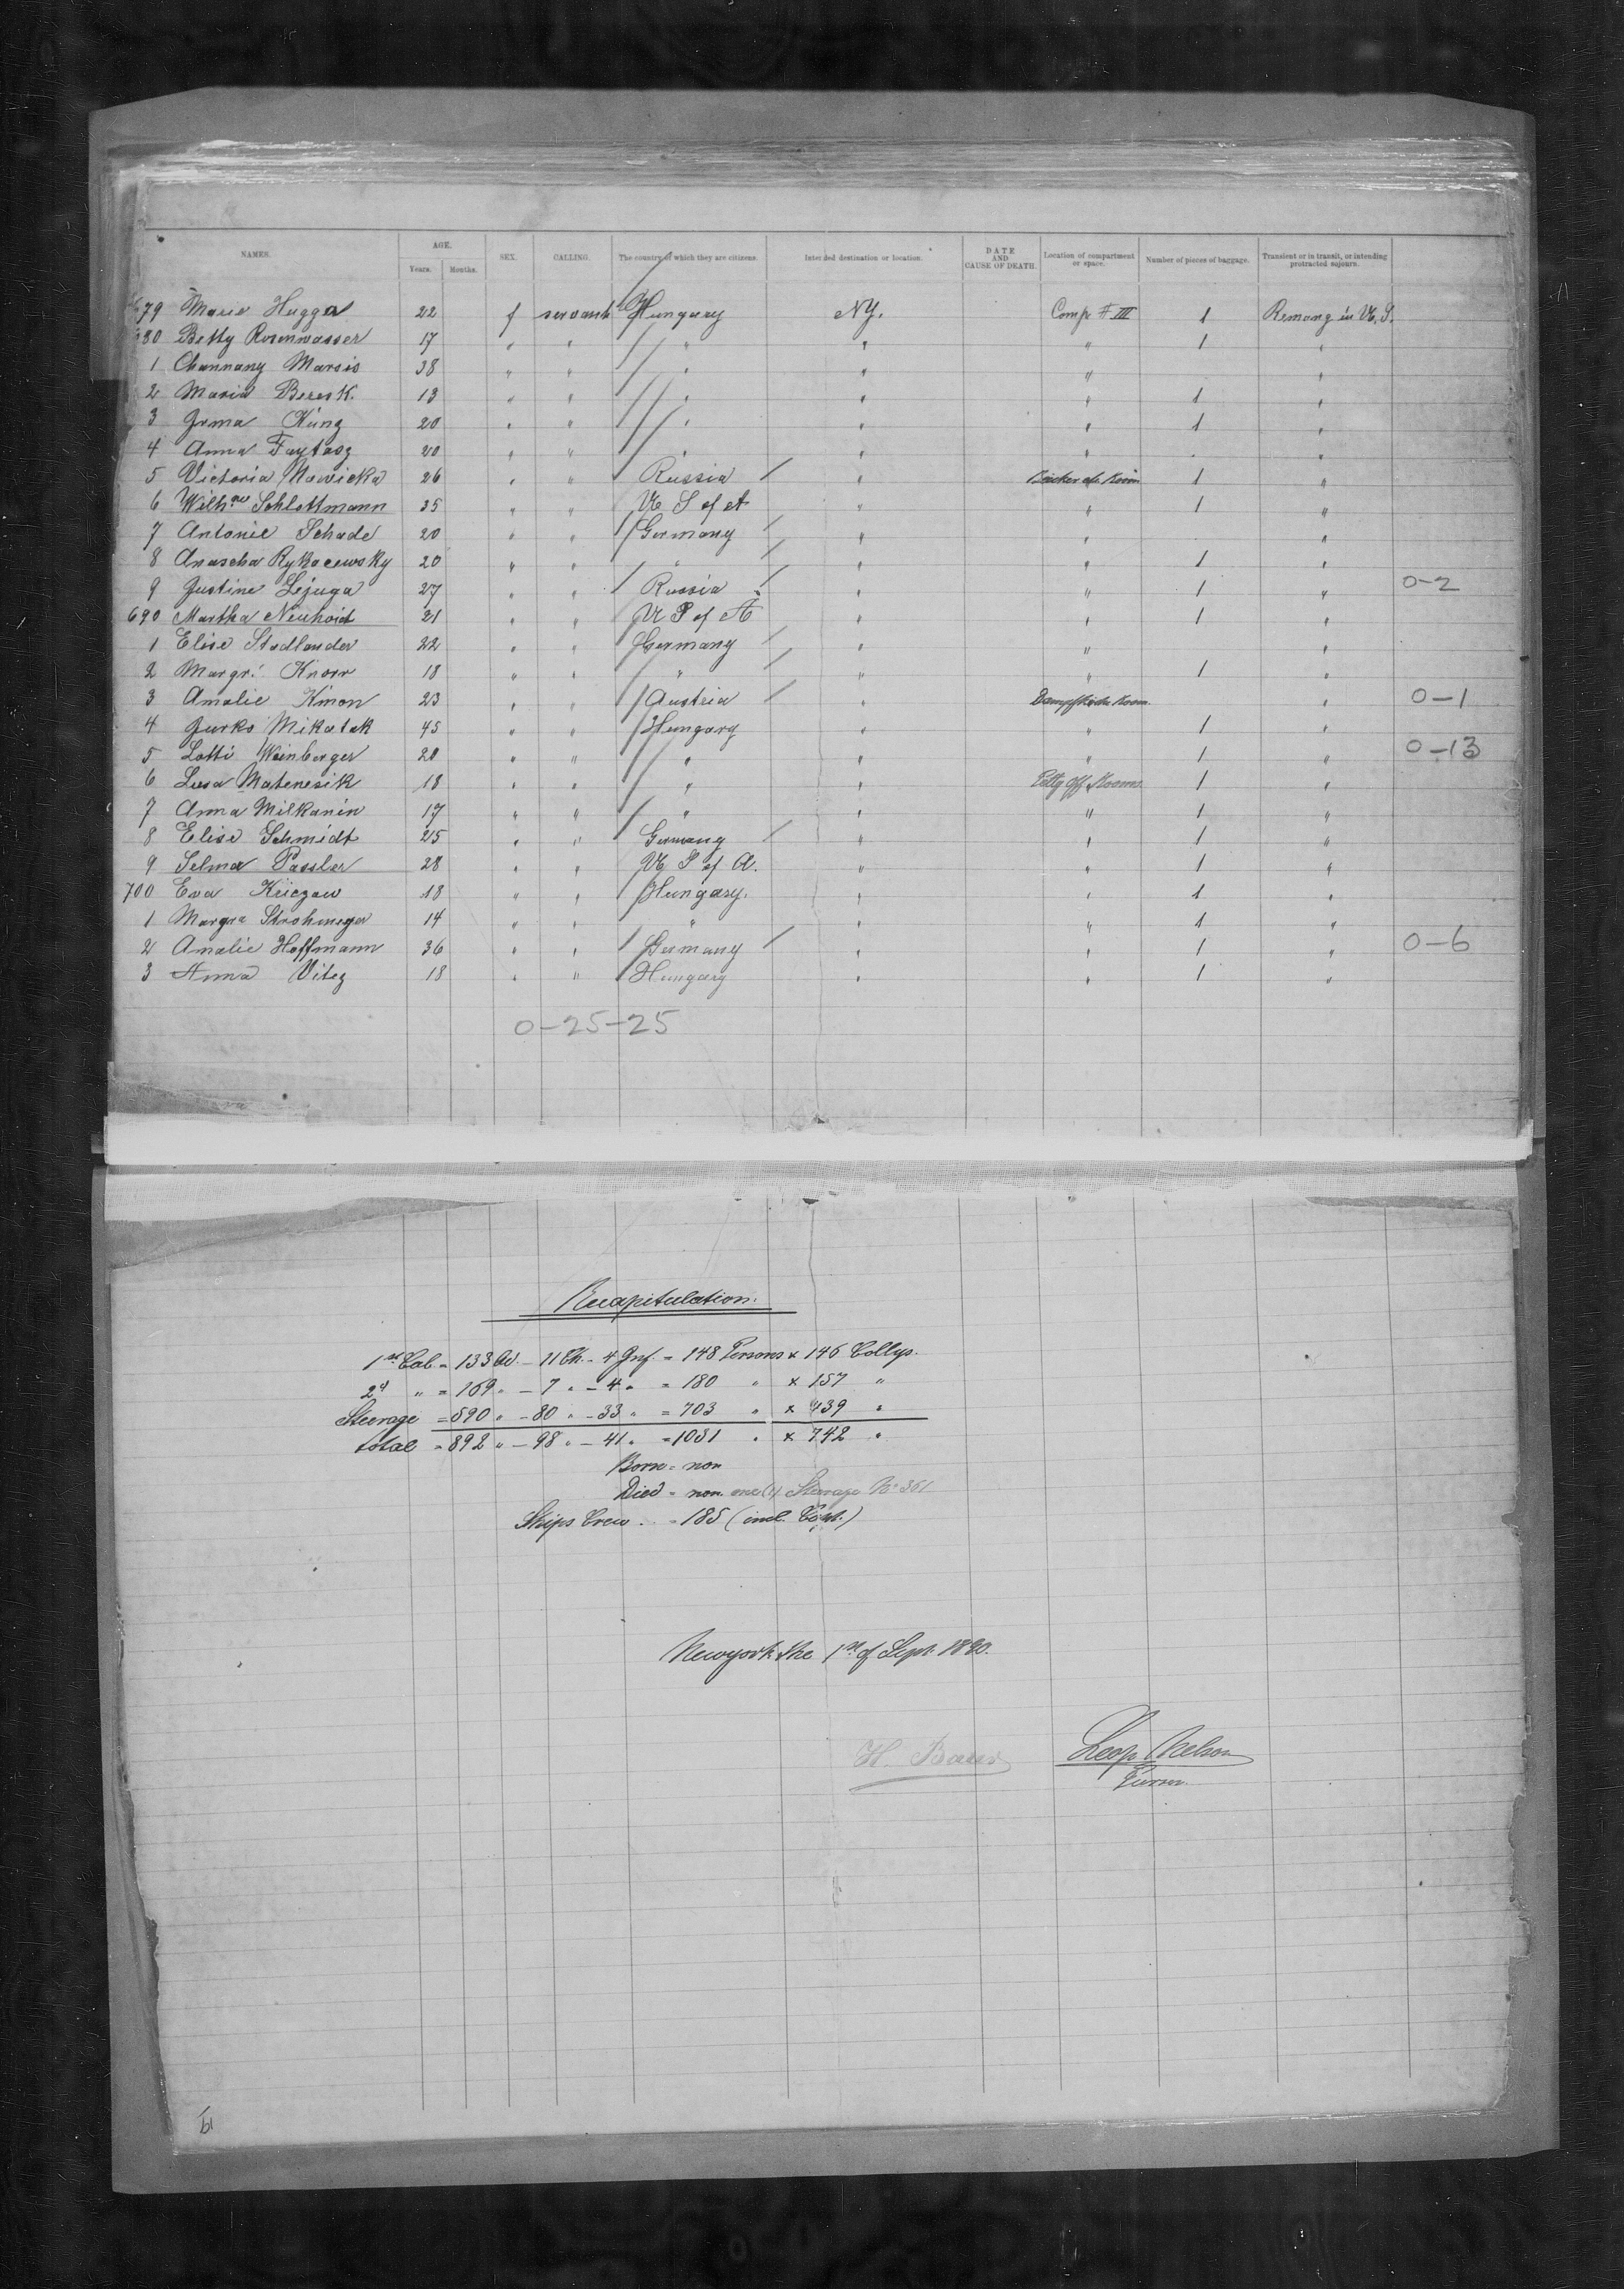 NAMES. AGE. Years. Months. SEX. CALLING. The country of which they are citizens. Intended destination or location. DATE AND CAUSE OF DEATH. Location of compartment or space. Number of pieces of baggage. Transient or in transit, or intending protracted sojourn.
679 Marie Hugga 22 f servant Hungary NY. Comp. # III 1 Remang in U. S.
680 Betty Rosenwasser 17 " " " " " 1 "
1 Channany Marsis 38 " " " " " "
2 Maria Beresk. 13 " " " " " 1 "
3 Irma Küng 20 " " " " " 1 "
4 Anna Faytasz 20 " " " " " "
5 Victoria Nowicka 26 " " Russia " Room 1 "
6 Schlottmann 35 " " U S of A " " 1 "
7 Antonie Schade 20 " " Germany " " "
8 Anascha Rykacewsky 20 " " " " " 1 "
9 Justine Lejuga 27 " " Russia " " 1 " 0-2
690 Martha Neuhoid 21 " " U S of A " " 1 "
1 Elise Stedlander 22 " " Germany " " "
2 Margr. Knorr 18 " " " " " 1 "
3 Amalie Kmon 23 " " Austria " Room " 0-1
4 Jurko Mikatak 45 " " Hungary " " 1 "
5 Lotti Weinberger 20 " " " " " 1 " 0-13
6 Lusa Matenesik 18 " " " " Petty Off. Rooms 1 "
7 Anna Milkanin 17 " " " " " 1 "
8 Elise Schmidt 25 " " Germany " " 1 "
9 Selma Passler 28 " " U S of A. " " 1 "
700 Eva Küczaw 18 " " Hungary. " " 1 "
1 Margra Strohmeyer 14 " " " " " 1 "
2 Amalie Hoffmann 36 " " Germany " " 1 " 0-6
3 Anna Vitez 18 " " Hungary " " 1 "
0-25-25
Recapitulation.
1st Cab. = 133 Ad. - 11 Ch. - 4 Inf. = 148 Persons x 146 Collys.
2d " = 169 " - 7 " - 4 " = 180 " x 157 "
Steerage = 590 " - 80 " - 33 " = 703 " x 439 "
total = 892 " - 98 " - 41 " = 1031 " x 742 "
Born = non
Died = non one (1) Steerage No 361
Ships Crew . = 185 (incl. Capt.)
Newyork the 1st of Sept. 1890.
H. Leop. Nelson